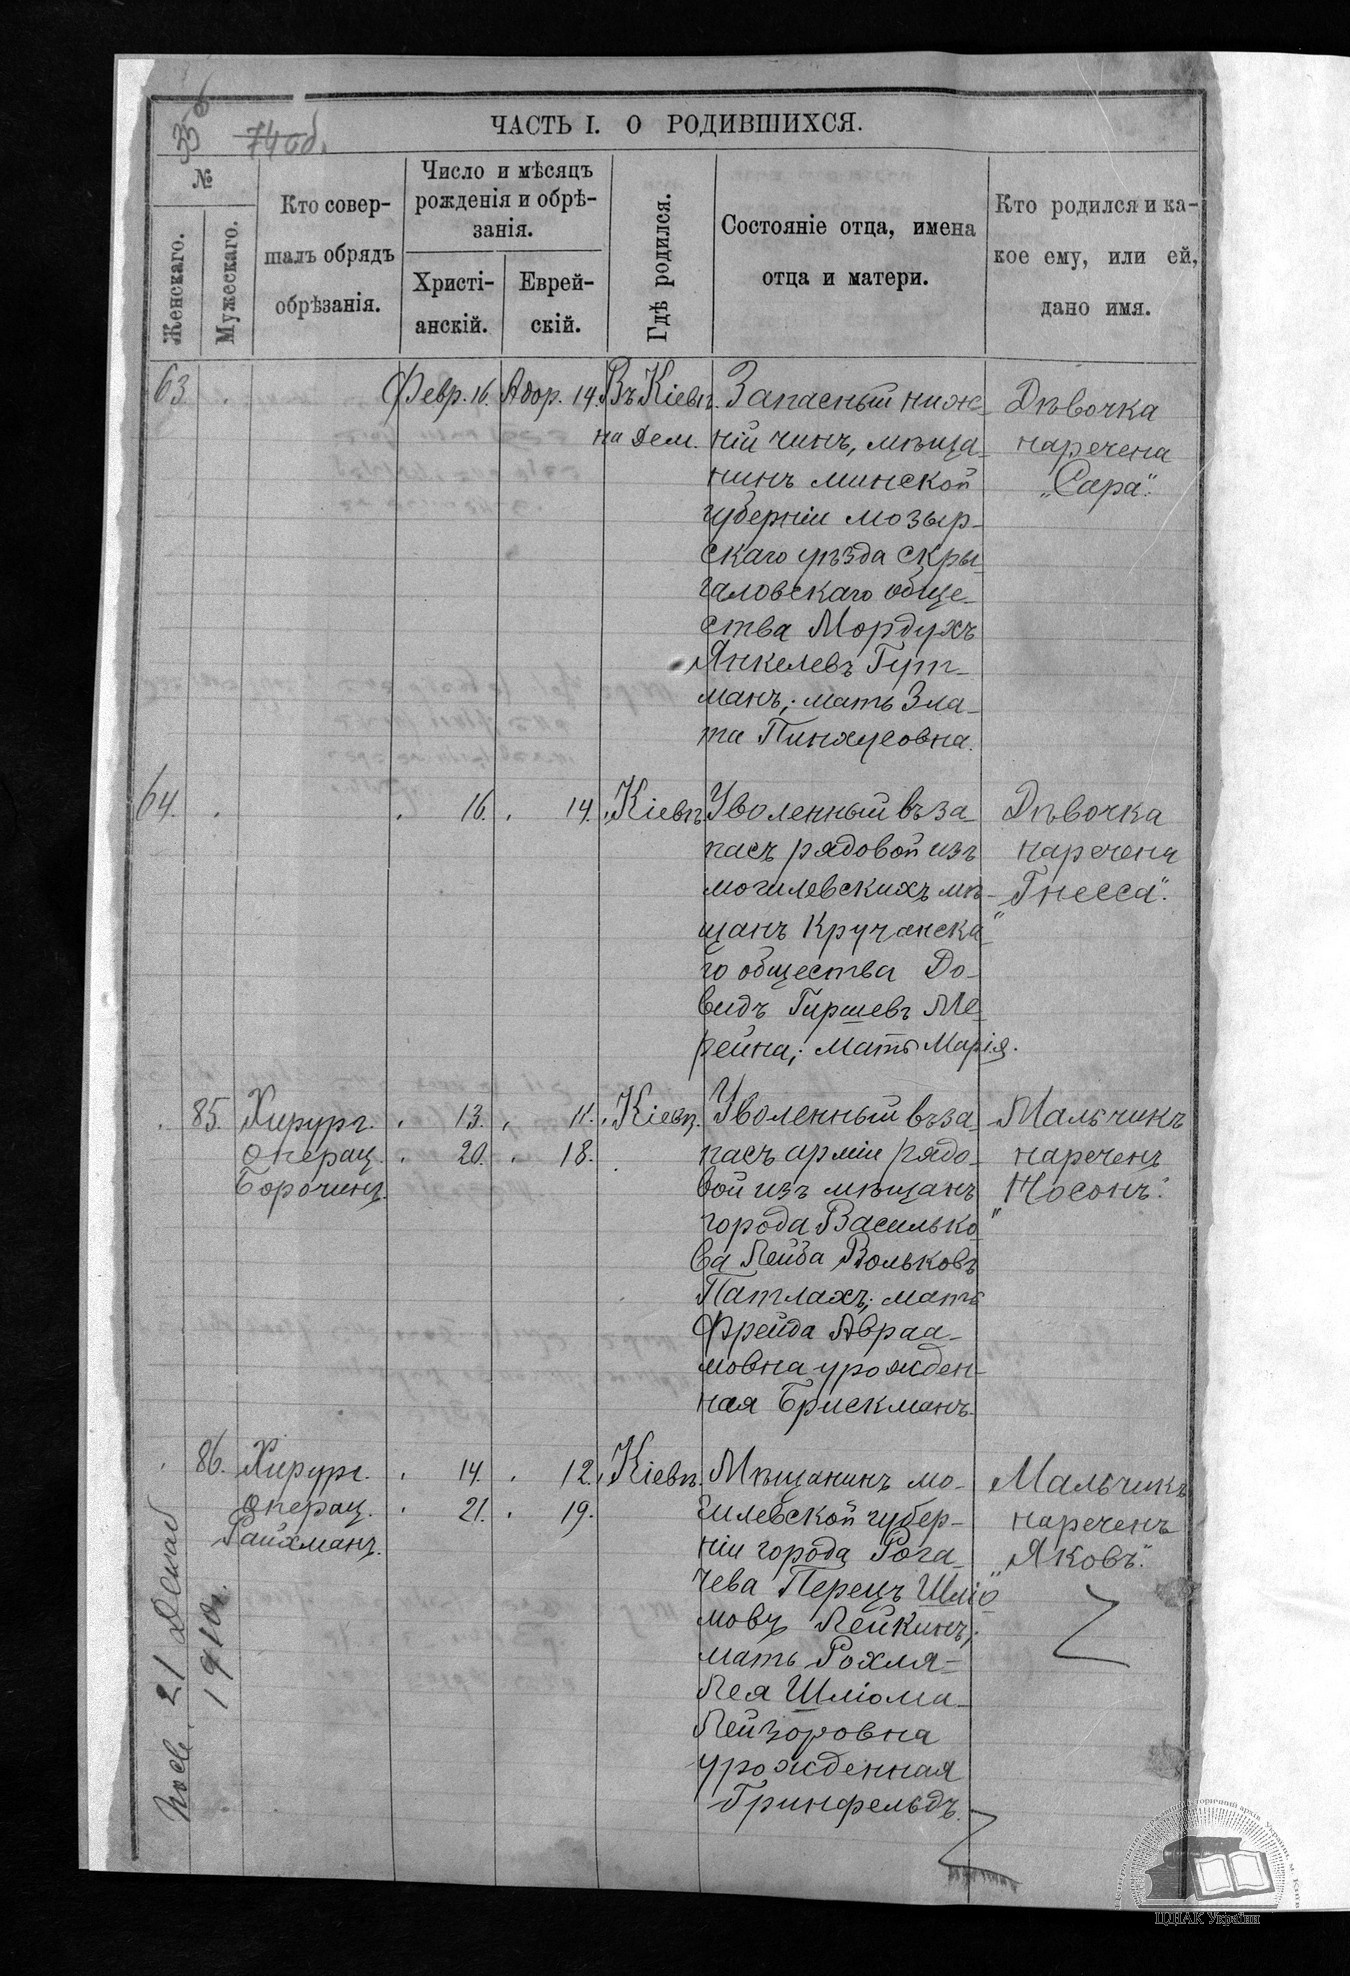 74 об.
ЧАСТЬ I. О РОДИВШИХСЯ.
№
Женскаго.
Мужескаго.
Кто совер-
шалъ обрядъ
обрѣзанія.
Число и мѣсяцъ
рожденія и обрѣ-
занія.
Христі-
анскій.
Еврей-
скій.
Гдѣ родился.
Состояніе отца, имена
отца и матери.
Кто родился и ка-
кое ему, или ей,
дано имя.
63
Февр. 16.
Адор. 14.
Въ Кіевѣ.
на Дем.
Запасный ниж-
ній чинъ, мѣща-
нинъ минской
губерніи мозыр-
скаго уѣзда скры-
галовскаго обще-
ства Мордухъ
Янкелевъ Гут-
манъ; мать Зла-
та Пинхусовна.
Дѣвочка
наречена
„Сара".
64.
16.
14.
Кіевѣ
Уволенный въ за-
пасъ рядовой изъ
могилевскихъ мѣ-
щанъ Кручанска-
го общества До-
видъ Гиршевъ Ме-
рейна; мать Марія.
Дѣвочка
наречена
„Гнесса".
85.
Хирург.
операц.
Борочинъ.
13.
20.
11.
18.
Кіевѣ.
Уволенный въ за-
пасъ арміи рядо-
вой изъ мѣщанъ
города Василько-
ва Лейба Вольковъ
Патлахъ; мать
Фрейда Авраа-
мовна урожден-
ная Брискманъ.
Мальчикъ
нареченъ
„Носонъ".
86.
Хирург.
операц.
Райхманъ.
14.
21.
12.
19.
Кіевѣ.
Мѣщанинъ мо-
гилевской губер-
ніи города Рога-
чева Перецъ Шліо-
мовъ Лейкинъ;
мать Рохля-
Лея Шліома-
Лейзоровна
урожденная
Гринфельдъ.
Мальчикъ
нареченъ
„Яковъ".
21
1910г.
ЦДІАК України